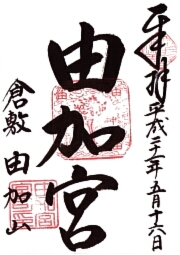 奉拝 平成 年五月十六日
由加宮
倉敷 由加山